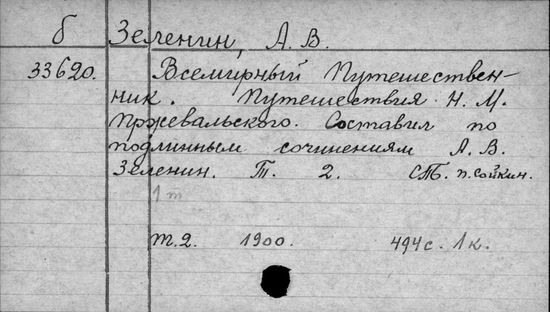 б Зеленин, А. В.
33620. Всемирный Путешествен-
ник. Путешествия Н. М.
Пржевальского. Составил по
подлинным сочинениям А. В.
Зеленин. Т. 2. СТб. п. Сойкин.
1 т
т. 2. 1900. 494 с. 1 к.